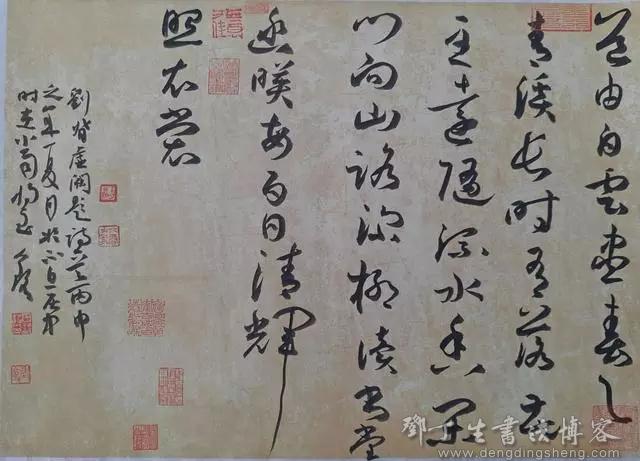 道由白雲盡春与
青溪長時有落花
至遠隨流水香閑
門向山路深柳讀書堂
幽映每白日清輝
照衣裳
劉昚虛闕題詩一首丙申
之年夏月於
鄧丁生書法博客
www.dengdingsheng.com